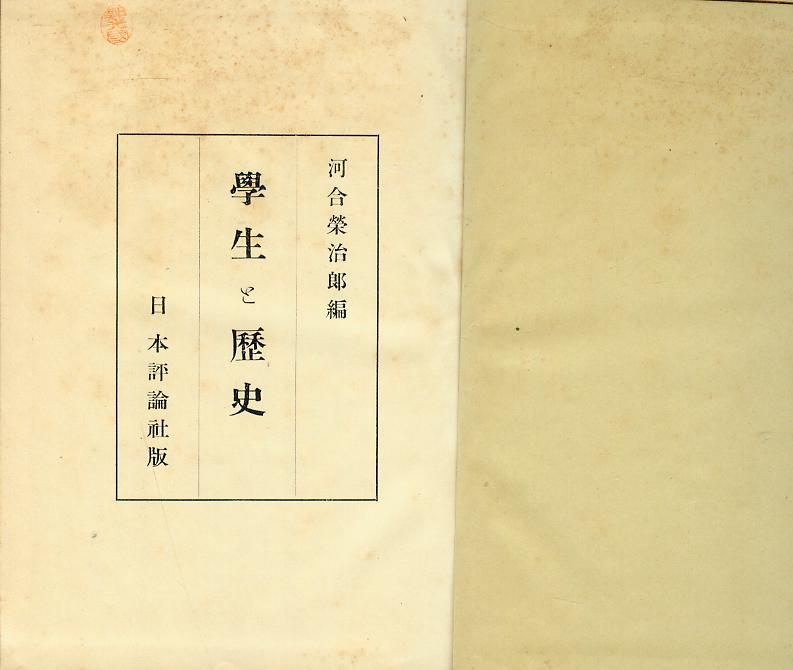 河合榮治郎編
學生と歷史
日本評論社版